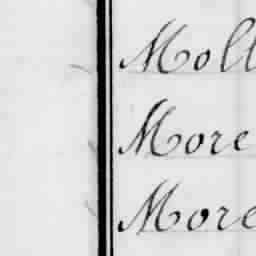 Moll
More
More